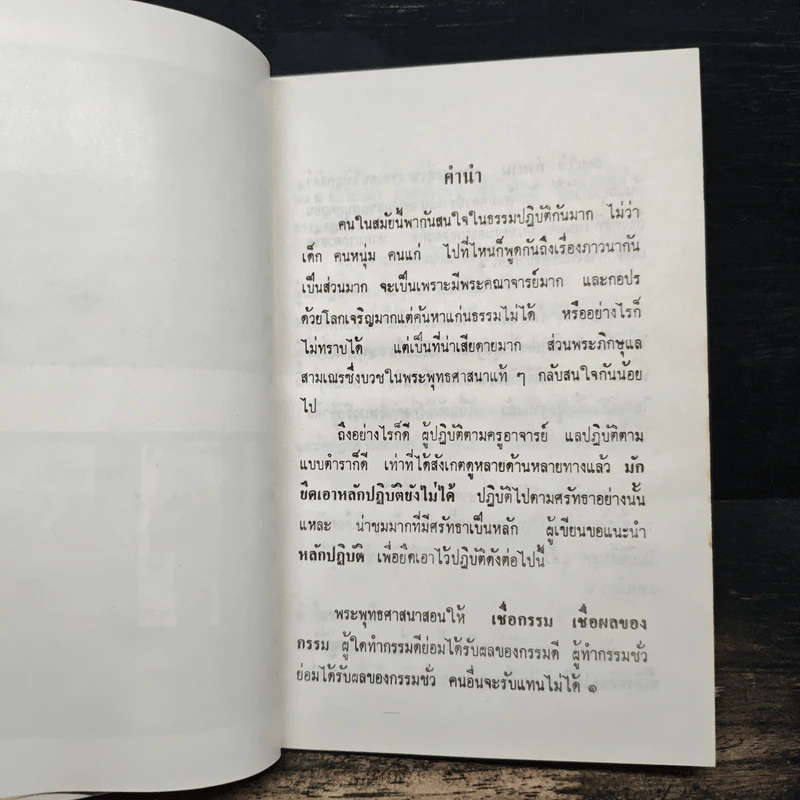 คำนำ
คนในสมัยนี้พากันสนใจในธรรมปฏิบัติกันมาก ไม่ว่า
เด็ก คนหนุ่ม คนแก่ ไปที่ไหนก็พูดกันถึงเรื่องภาวนากัน
เป็นส่วนมาก จะเป็นเพราะมีพระคณาจารย์มาก และกอปร
ด้วยโลกเจริญมากแต่ค้นหาแก่นธรรมไม่ได้ หรืออย่างไรก็
ไม่ทราบได้ แต่เป็นที่น่าเสียดายมาก ส่วนพระภิกษุแล
สามเณรซึ่งบวชในพระพุทธศาสนาแท้ ๆ กลับสนใจกันน้อย
ไป
ถึงอย่างไรก็ดี ผู้ปฏิบัติตามครูอาจารย์ แลปฏิบัติตาม
แบบตำราก็ดี เท่าที่ได้สังเกตดูหลายด้านหลายทางแล้ว มัก
ยึดเอาหลักปฏิบัติยังไม่ได้ ปฏิบัติไปตามศรัทธาอย่างนั้น
แหละ น่าชมมากที่มีศรัทธาเป็นหลัก ผู้เขียนขอแนะนำ
หลักปฏิบัติ เพื่อยึดเอาไว้ปฏิบัติดังต่อไปนี้
พระพุทธศาสนาสอนให้ เชื่อกรรม เชื่อผลของ
กรรม ผู้ใดทำกรรมดีย่อมได้รับผลของกรรมดี ผู้ทำกรรมชั่ว
ย่อมได้รับผลของกรรมชั่ว คนอื่นจะรับแทนไม่ได้ ๑